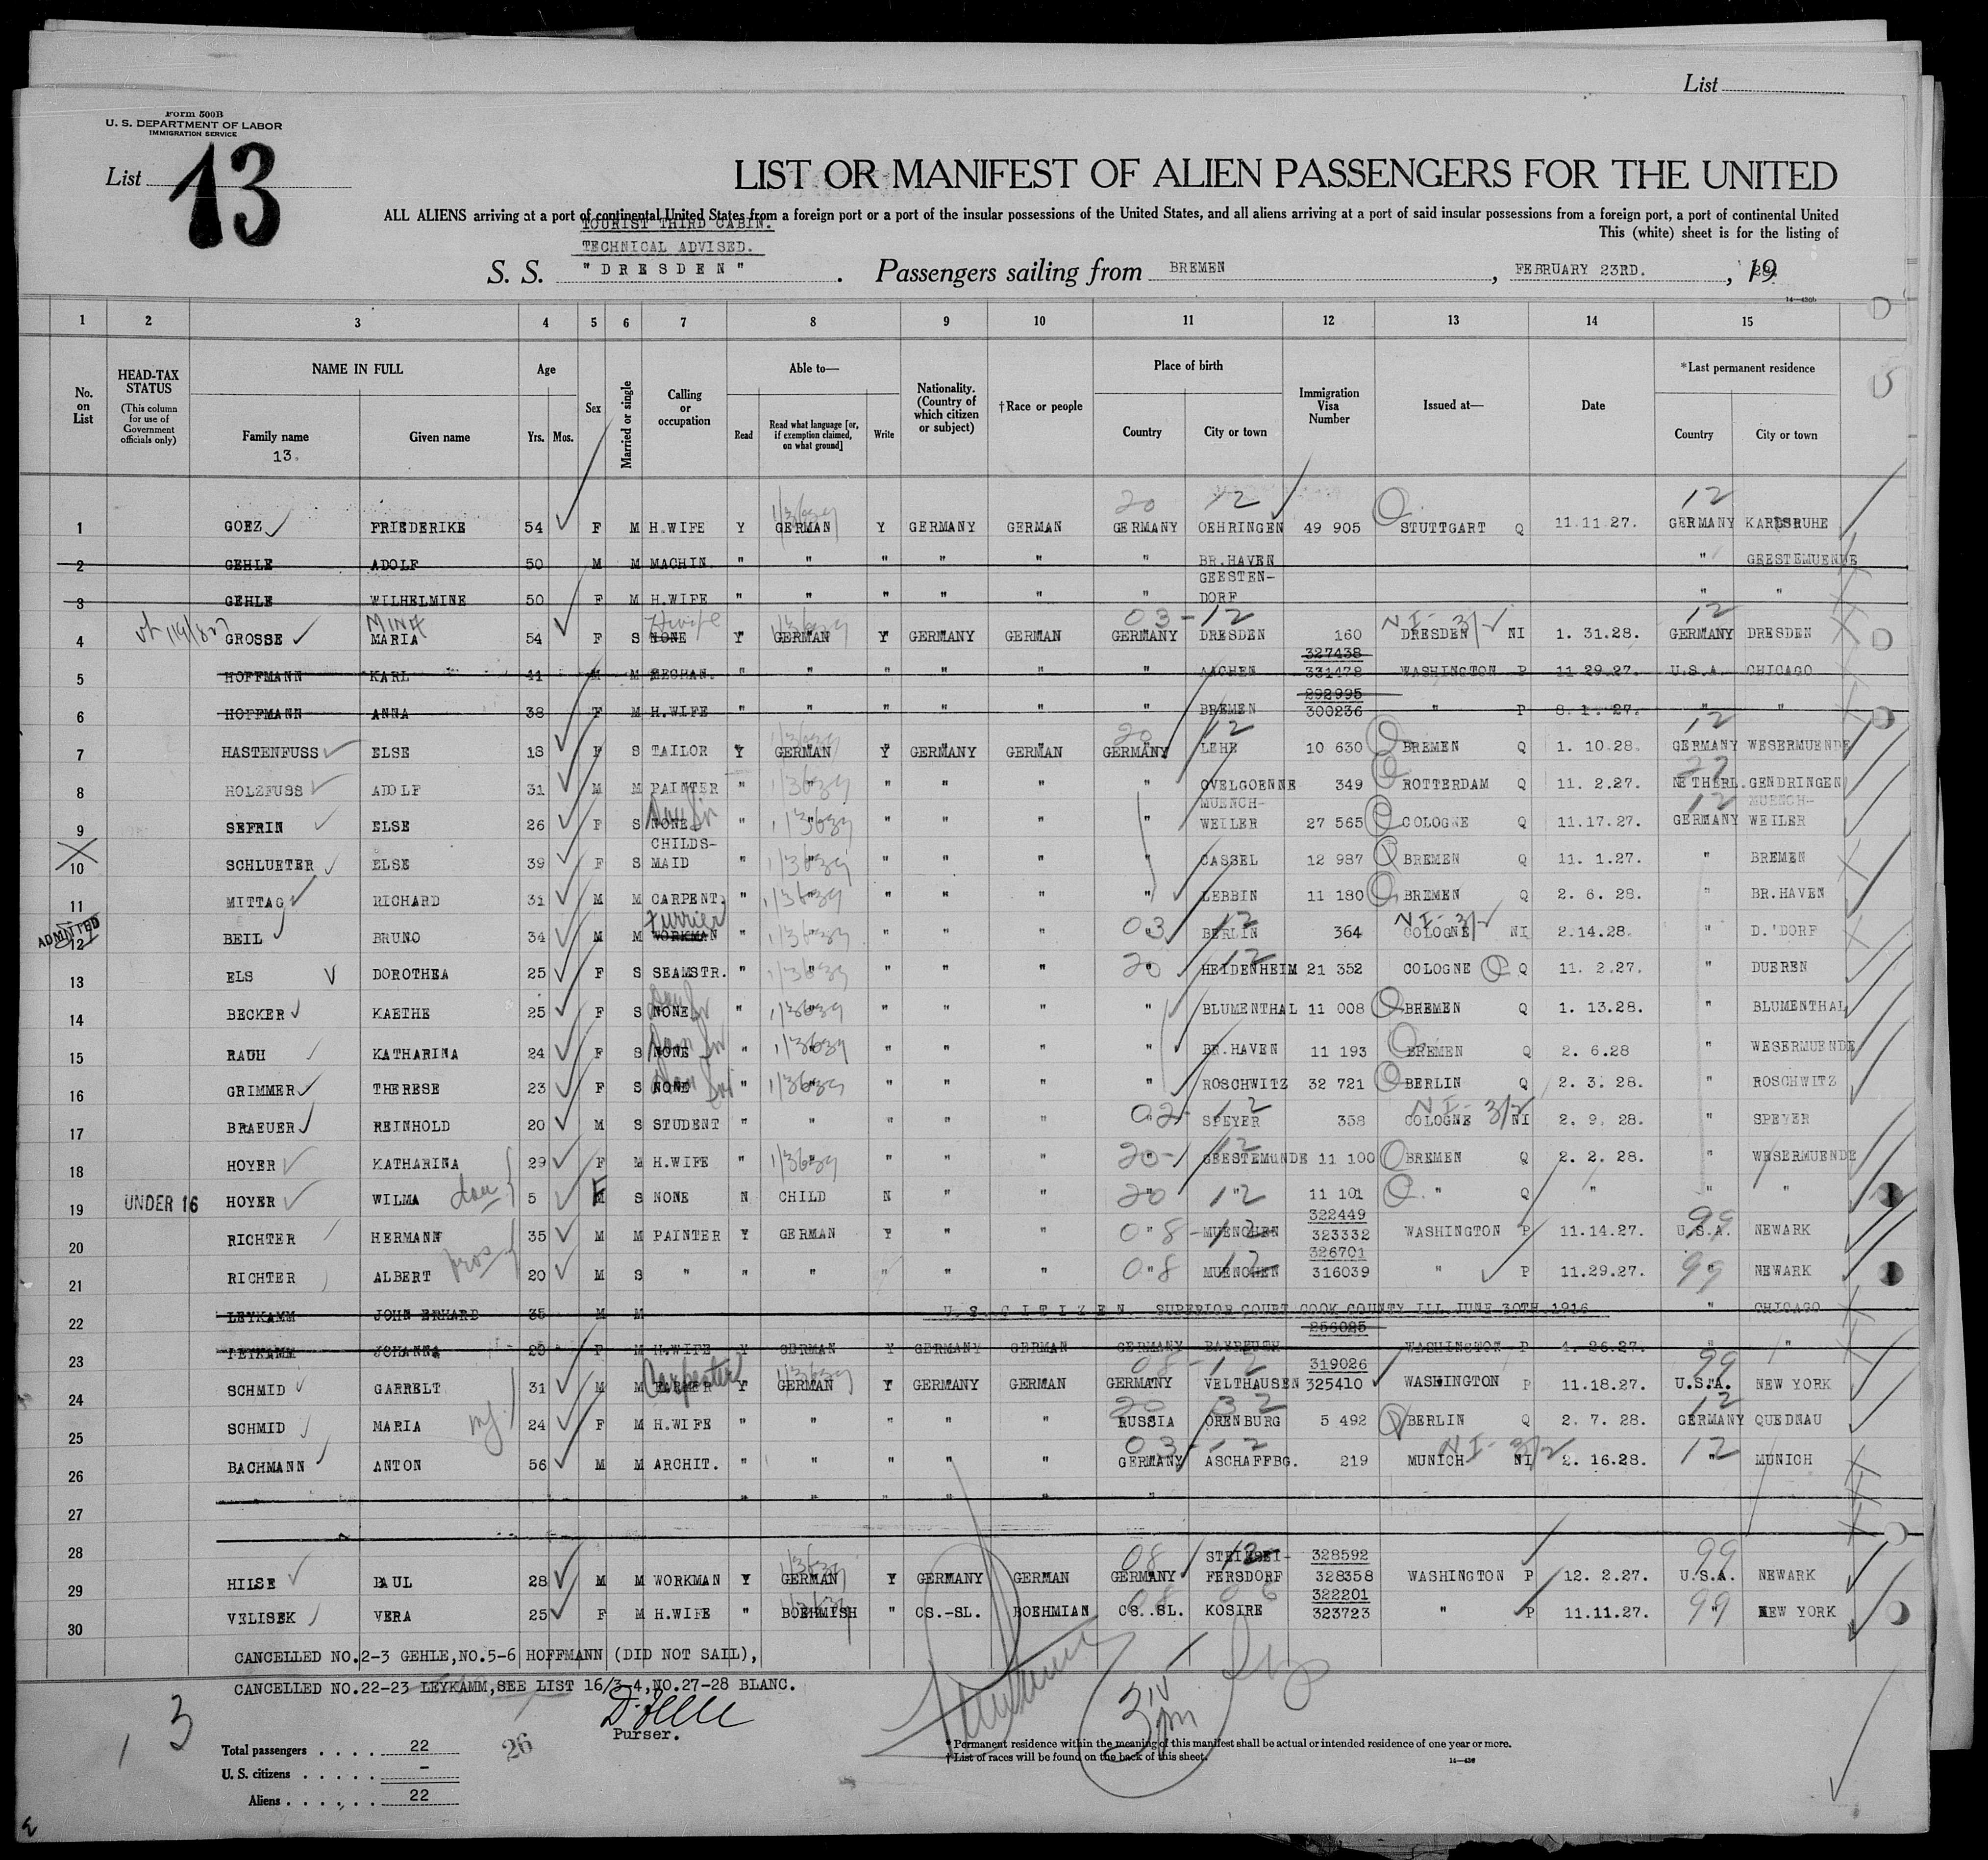 List
Form 500B
U. S. DEPARTMENT OF LABOR
IMMIGRATION SERVICE
List 13
LIST OR MANIFEST OF ALIEN PASSENGERS FOR THE UNITED
ALL ALIENS arriving at a port of continental United States from a foreign port or a port of the insular possessions of the United States, and all aliens arriving at a port of said insular possessions from a foreign port, a port of continental United
TOURIST THIRD CABIN.
This (white) sheet is for the listing of
TECHNICAL ADVISED.
S. S. "DRESDEN" . Passengers sailing from BREMEN , FEBRUARY 23RD. , 19
14—430b
1 2 3 4 5 6 7 8 9 10 11 12 13 14 15
No. on List
HEAD-TAX STATUS (This column for use of Government officials only)
NAME IN FULL Family name Given name
13.
Age Yrs. Mos.
Sex
Married or single
Calling or occupation
Able to— Read Read what language [or, if exemption claimed, on what ground] Write
Nationality. (Country of which citizen or subject)
†Race or people
Place of birth Country City or town
Immigration Visa Number
Issued at—
Date
*Last permanent residence Country City or town
20 12 12
1 GOEZ FRIEDERIKE 54 F M H.WIFE Y GERMAN Y GERMANY GERMAN GERMANY OEHRINGEN 49 905 STUTTGART Q 11.11.27. GERMANY KARLSRUHE
2 GEHLE ADOLF 50 M M MACHIN. " " " " " " BR.HAVEN " GEESTEMUENDE
GEESTEN-
3 GEHLE WILHELMINE 50 F M H.WIFE " " " " " " DORF " "
MINA Hwife 03-12 NI- 3/2 12
4 GROSSE MARIA 54 F S NONE Y GERMAN Y GERMANY GERMAN GERMANY DRESDEN 160 DRESDEN NI 1. 31.28. GERMANY DRESDEN
327438
5 HOFFMANN KARL 41 M M MECHAN. " " " " " " AACHEN 331478 WASHINGTON P 11.29.27. U.S.A. CHICAGO
292995
6 HOFFMANN ANNA 38 F M H.WIFE " " " " " " BREMEN 300236 " P 8. 1. 27. " "
20 12 12
7 HASTENFUSS ELSE 18 F S TAILOR Y GERMAN Y GERMANY GERMAN GERMANY LEHE 10 630 BREMEN Q 1. 10.28. GERMANY WESERMUENDE
8 HOLZFUSS ADOLF 31 M M PAINTER " " " " " " OVELGOENNE 349 ROTTERDAM Q 11. 2.27. NETHERL. GENDRINGEN
MUENCH- 12 MUENCH-
9 SEFRIN ELSE 26 F S NONE " " " " " " WEILER 27 565 COLOGNE Q 11.17.27. GERMANY WEILER
CHILDS-
10 SCHLUETER ELSE 39 F S MAID " " " " " " CASSEL 12 987 BREMEN Q 11. 1.27. " BREMEN
11 MITTAG RICHARD 31 M M CARPENT. " " " " " " LEBBIN 11 180 BREMEN Q 2. 6. 28. " BR.HAVEN
ADMITTED Furrier 03 12 NI- 3/2
12 BEIL BRUNO 34 M M WORKMAN " " " " " " BERLIN 364 COLOGNE NI 2.14.28. " D.'DORF
20 12
13 ELS DOROTHEA 25 F S SEAMSTR. " " " " " " HEIDENHEIM 21 352 COLOGNE Q 11. 2.27. " DUEREN
14 BECKER KAETHE 25 F S NONE " " " " " " BLUMENTHAL 11 008 BREMEN Q 1. 13.28. " BLUMENTHAL
15 RAUH KATHARINA 24 F S NONE " " " " " " BR.HAVEN 11 193 BREMEN Q 2. 6.28 " WESERMUENDE
16 GRIMMER THERESE 23 F S NONE " " " " " " ROSCHWITZ 32 721 BERLIN Q 2. 3. 28. " ROSCHWITZ
02- 12 NI- 3/2
17 BRAEUER REINHOLD 20 M S STUDENT " " " " " " SPEYER 358 COLOGNE NI 2. 9. 28. " SPEYER
20- 12
18 HOYER KATHARINA 29 F M H.WIFE " " " " " " GEESTEMUNDE 11 100 BREMEN Q 2. 2. 28. " WESERMUENDE
19 UNDER 16 HOYER WILMA dau 5 F S NONE N CHILD N " " 20 12 11 101 " Q " " "
322449
20 RICHTER HERMANN 35 M M PAINTER Y GERMAN Y " " 08-12 MUENCHEN 323332 WASHINGTON P 11.14.27. U.S.A. 99 NEWARK
326701
21 RICHTER ALBERT 20 M S " " " " " " 08 12 MUENCHEN 316039 " P 11.29.27. 99 NEWARK
22 LEYKAMM JOHN ERHARD 35 M M U.S. CITIZEN. SUPERIOR COURT COOK COUNTY ILL. JUNE 30TH 1916 " CHICAGO
256025
23 LEYKAMM JOHANNA 29 F M H.WIFE Y GERMAN Y GERMANY GERMAN GERMANY BAYREUTH WASHINGTON P 4. 26.27. " "
Carpenter 08-12 319026 99
24 SCHMID GARRELT 31 M M FARMER Y GERMAN Y GERMANY GERMAN GERMANY VELTHAUSEN 325410 WASHINGTON P 11.18.27. U.S.A. NEW YORK
20 32 12
25 SCHMID MARIA 24 F M H.WIFE " " " " " RUSSIA ORENBURG 5 492 BERLIN Q 2. 7. 28. GERMANY QUEDNAU
03-12 NI- 3/2 12
26 BACHMANN ANTON 56 M M ARCHIT. " " " " " GERMANY ASCHAFFBG. 219 MUNICH NI 2. 16.28. " MUNICH
27 " " " " " "
28
08 12 STEINSEI- 328592 99
29 HILSE PAUL 28 M M WORKMAN Y GERMAN Y GERMANY GERMAN GERMANY FERSDORF 328358 WASHINGTON P 12. 2.27. U.S.A. NEWARK
322201
30 VELISEK VERA 25 F M H.WIFE " BOEHMISH " CS.-SL. BOEHMIAN CS.-SL. KOSIRE 323723 " P 11.11.27. 99 " NEW YORK
CANCELLED NO.2-3 GEHLE,NO.5-6 HOFFMANN (DID NOT SAIL),
CANCELLED NO.22-23 LEYKAMM,SEE LIST 16/3-4,NO.27-28 BLANC.
Purser.
13
26
Total passengers . . . . 22
U. S. citizens . . . . . –
Aliens . . . . . . 22
* Permanent residence within the meaning of this manifest shall be actual or intended residence of one year or more.
† List of races will be found on the back of this sheet.
14—430